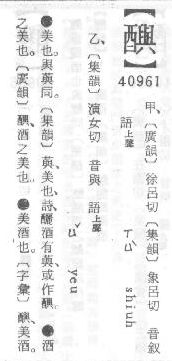 【醹】
40961
甲、〔廣韻〕徐呂切〔集韻〕象呂切 音敘
語上聲 ㄒㄩˋ shiuh
乙、〔集韻〕演女切 音與 語上聲
ㄩˇ yeu
●美也與藇同。〔集韻〕藇美也、詩、釃酒有藇或作醹。●酒
之美也。〔廣韻〕醹、酒之美也。●美酒也。〔字彙〕醹、美酒。